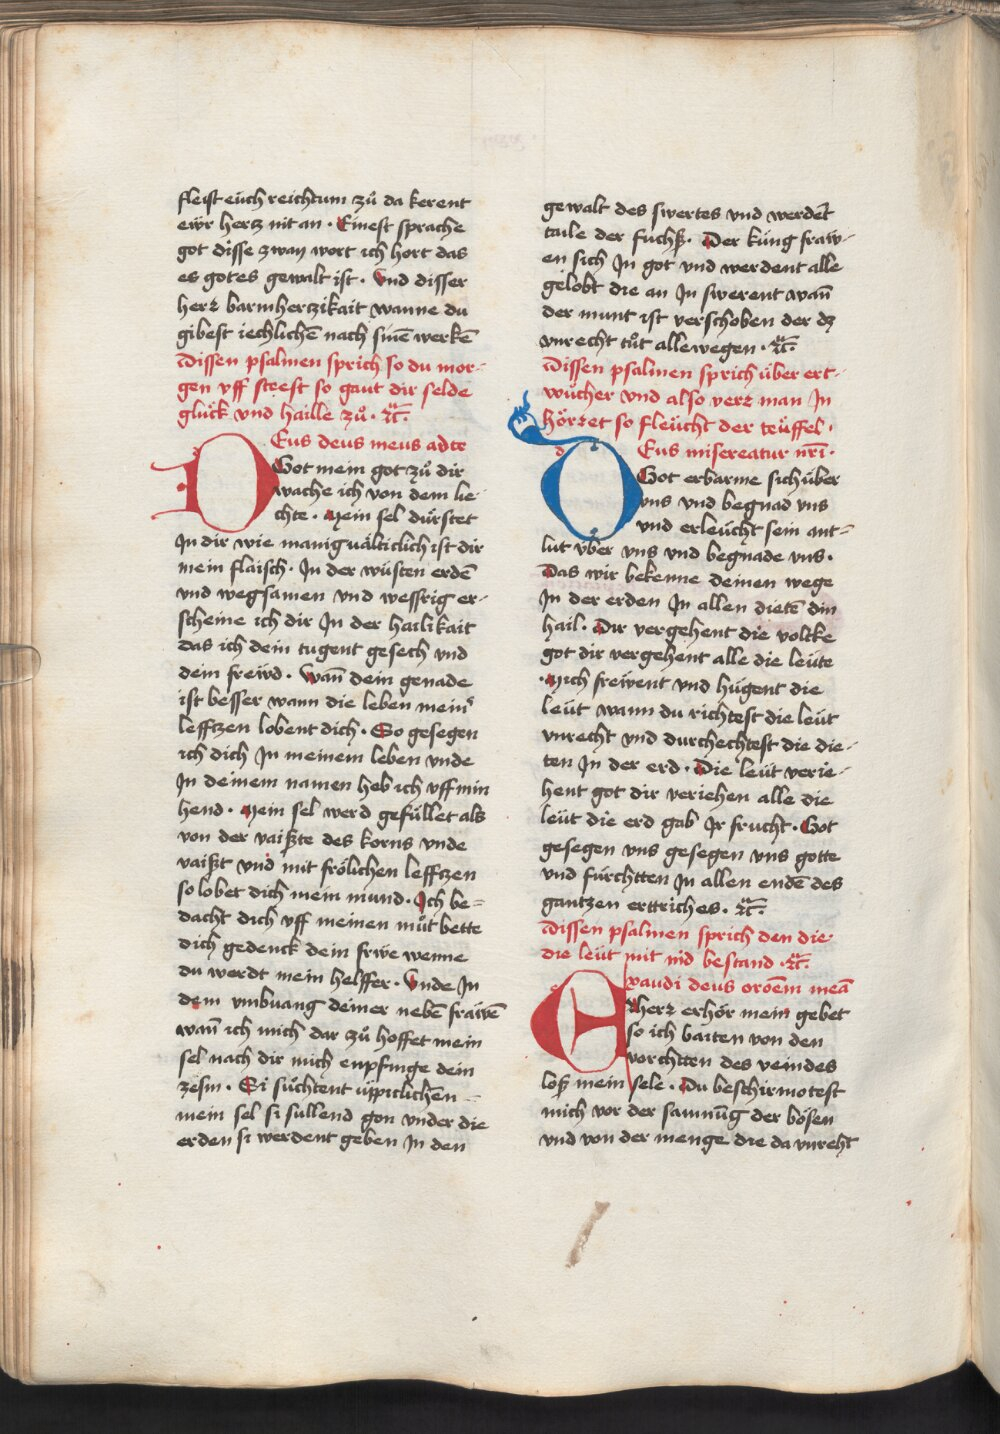 fleist euͤch reichtum zuͦ da kerent
ewr hertz nit an · Einest sprache
got disse zway wort ich hort das
es gotes gewalt ist · Vnd disser
herꝛ barmhertzikait wanne du
gibest iechlichē nach sinē werkē
Dissen psalmen sprich so du mor-
gen vff steest so gaut dir selde
gluͤck vnd haille zuͦ · ꝛc̄ ·
DEus deus meus ad te
Got mein got zuͦ dir
wache ich von dem lie-
chte · Mein sel duͤrstet
In dir wie manigualticlich ist dir
mein flaisch · In der wuͤsten erdē
vnd wegsamen vnd wessrig er-
scheine ich dir In der hailikait
das ich dein tugent gesech vnd
dein freẅd · Wañ dein genade
ist besser wann die leben mein
lefftzen lobent dich · So gesegen
ich dich In meinem leben vnde
In deinem namen heb ich vff min
hend · Mein sel werd gefuͤllet als
von der vaißte des korns vnde
vaißt vnd mit froͤlichen lefftzen
so lobet dich mein mund · Ich be-
dacht dich vff meinen muͦt bette
dich gedenck dein frwe wenne
du werdt mein helffer · Vnde In
dem vmbuang deiner nebē fraiwē
wañ ich mich dar zuͦ hoffet mein
sel nach dir mich enpfinge dein
zesm · Si suͦchtent uͤppiclichen
mein sel si sullend gon vnder die
erden si werdent geben In den
gewalt des swertes vnd werdēt
taile der fuchß · Der kuͤng fraw-
en sich In got vnd werdent alle
gelobt die an In swerent wañ
der munt ist verschoben der dz
vnrecht tuͦt allewegen · ꝛc̄ ·
Dissen psalmen sprich uͤber ert-
wuͦcher vnd also verꝛ man In
hoͤrꝛet so fleuͤcht der teuͤffel ·
DEus misereatur nr̄i ·
Got erbarme sich uͤber
vns vnd begnad vns
vnd erleuͤcht sein ant-
lut uͤber vns vnd begnade vns ·
Das wir bekenne deinen wege
In der erden In allen dietē din
hail · Dir vergehent die volcke
got dir vergehent alle die leuͤte
· Mich freiwent vnd huͤgent die
leuͤt wann du richtest die leuͤt
vnrecht vnd durchechtest die die-
ten In der erd · Die leuͤt verie-
hent got dir veriehen alle die
leuͤt die erd gab Ir frucht · Got
gesegen vns gesegen vns gotte
vnd furchtten In allen endē des
gantzen ertriches · ꝛc̄ ·
Dissen psalmen sprich den die
die leuͤt mit nid bestand · ꝛc̄ ·
Exaudi deus orōem meā
Herꝛ erhoͤr mein gebet
so ich baiten von den
vorchtten des veindes
loß mein sele · Du beschirmotest
mich vor der samnūg der boͤsen
vnd von der menge die da vnreht